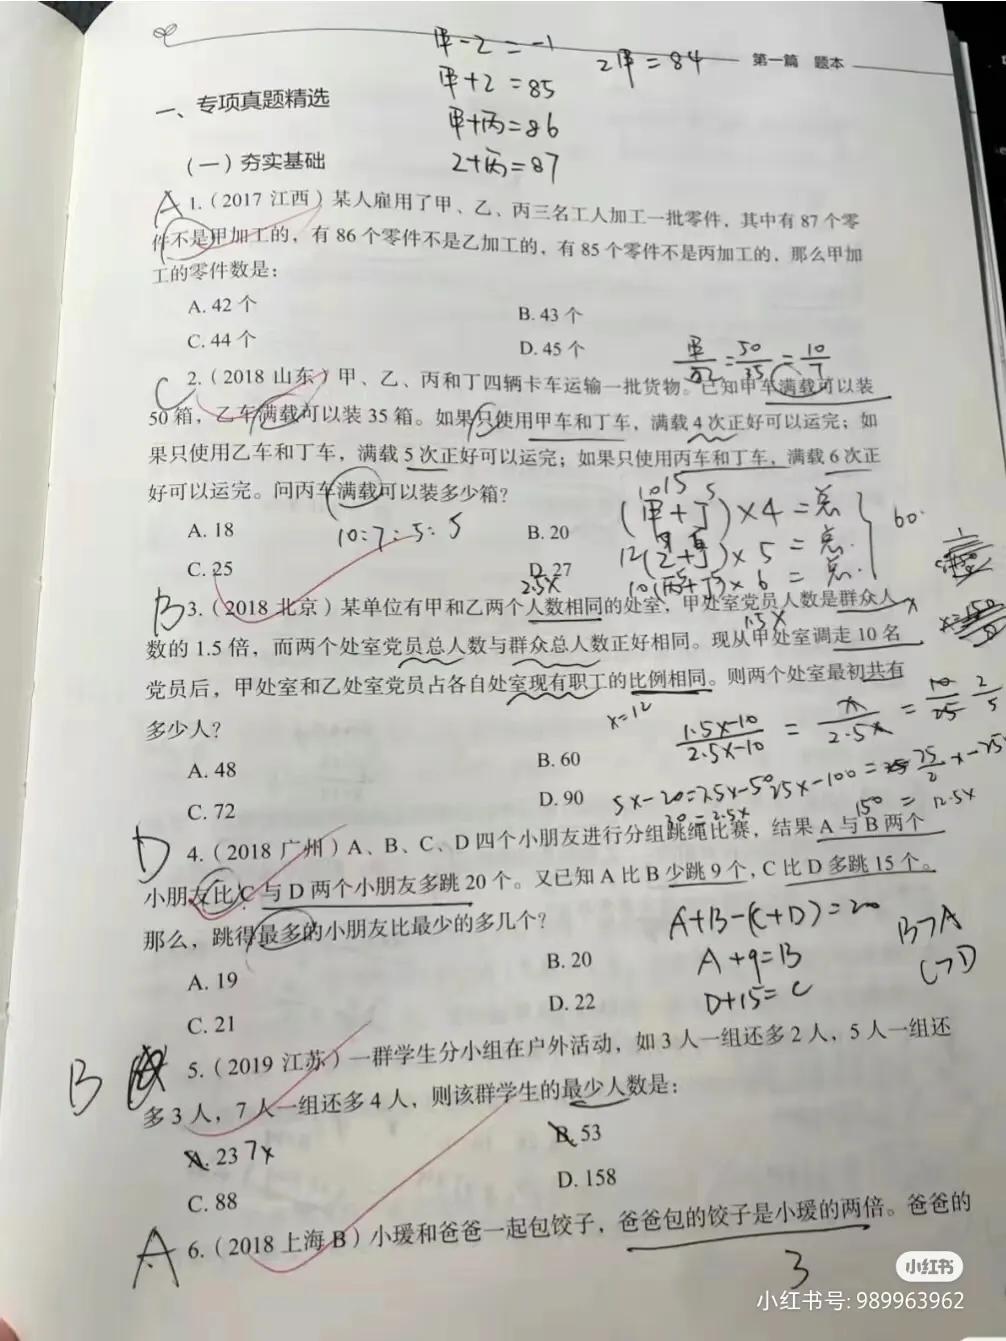 甲-乙=-1
2甲=84
第一篇 题本
甲+乙=85
一、专项真题精选
甲+丙=86
(一)夯实基础
乙+丙=87
A 1.(2017 江西)某人雇用了甲、乙、丙三名工人加工一批零件,其中有 87 个零
件不是甲加工的,有 86 个零件不是乙加工的,有 85 个零件不是丙加工的,那么甲加
工的零件数是:
A. 42 个
B. 43 个
C. 44 个
D. 45 个
甲/乙=50/35=10/7
C 2.(2018 山东)甲、乙、丙和丁四辆卡车运输一批货物。已知甲车满载可以装
50 箱,乙车满载可以装 35 箱。如果只使用甲车和丁车,满载 4 次正好可以运完;如
果只使用乙车和丁车,满载 5 次正好可以运完;如果只使用丙车和丁车,满载 6 次正
好可以运完。问丙车满载可以装多少箱?
10 15 5
A. 18
10:7:5:5
B. 20
(甲+丁)×4=总
60
12(乙+丁)×5=总
C. 25
D. 27
10(丙+丁)×6=总
2.5x
B 3.(2018 北京)某单位有甲和乙两个人数相同的处室,甲处室党员人数是群众人
x
1.5x
数的 1.5 倍,而两个处室党员总人数与群众总人数正好相同。现从甲处室调走 10 名
党员后,甲处室和乙处室党员占各自处室现有职工的比例相同。则两个处室最初共有
多少人?
x=12
1.5x-10/2.5x-10=x/2.5x=10/25 2/5
A. 48
B. 60
C. 72
D. 90
5x-20=2.5x-50
25x-100=75/2x-25x
20=2.5x
150=12.5x
D 4.(2018 广州)A、B、C、D 四个小朋友进行分组跳绳比赛,结果 A 与 B 两个
小朋友比 C 与 D 两个小朋友多跳 20 个。又已知 A 比 B 少跳 9 个,C 比 D 多跳 15 个。
那么,跳得最多的小朋友比最少的多几个?
A+B-(C+D)=20
B>A
A. 19
B. 20
A+9=B
C>D
C. 21
D. 22
D+15=C
B 5.(2019 江苏)一群学生分小组在户外活动,如 3 人一组还多 2 人,5 人一组还
多 3 人,7 人一组还多 4 人,则该群学生的最少人数是:
A. 23 7x
B. 53
C. 88
D. 158
A 6.(2018 上海 B)小瑗和爸爸一起包饺子,爸爸包的饺子是小瑗的两倍。爸爸的
3
小红书
小红书号: 989963962